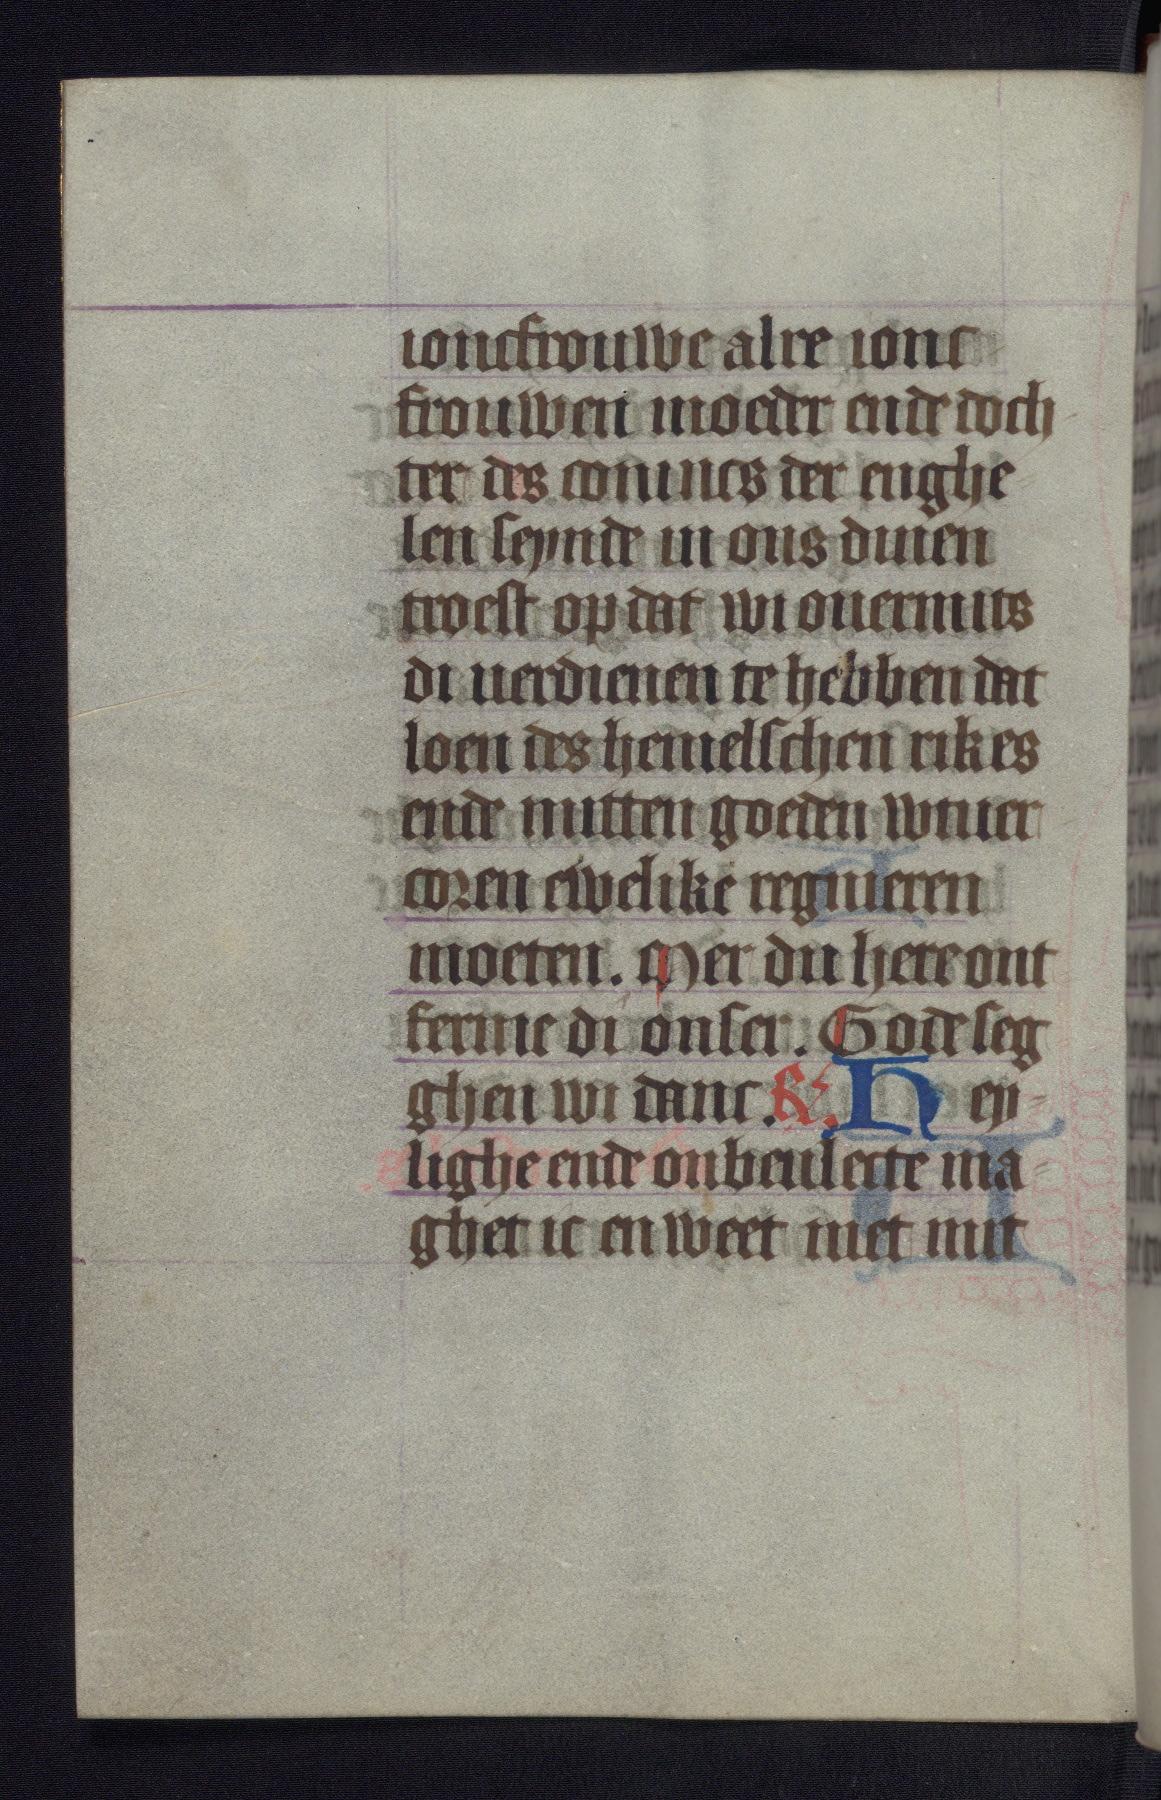 ioncfrouwe alre ionc
frouwen moeder ende doch
ter des conincs der enghe
len seynde in ons dinen
troest op dat wi ouermits
di uerdienen te hebben dat
loen des hemelschen rikes
ende mitten goeden wtuer
coren ewelike regnieren
moeten. Mer du here ont
ferme di onser. Gode seg
ghen wi danc. R. Hey
lighe ende onbeulecte ma
ghet ic en weet niet mit